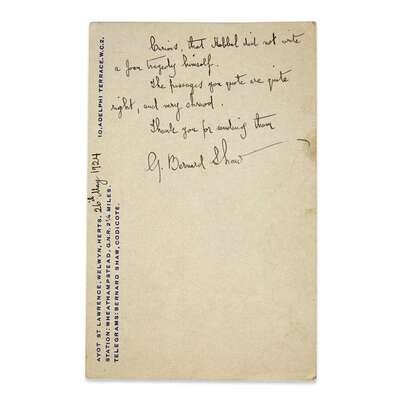 Curious, that Hebbel did not write
a Joan tragedy himself.
The passages you quote are quite
right, and very shrewd.
Thank you for sending them
G. Bernard Shaw
10, ADELPHI TERRACE, W.C.2.
26th May 1924
AYOT ST LAWRENCE, WELWYN, HERTS.
STATION: WHEATHAMPSTEAD, G.N.R. 2¼ MILES.
TELEGRAMS: BERNARD SHAW, CODICOTE.